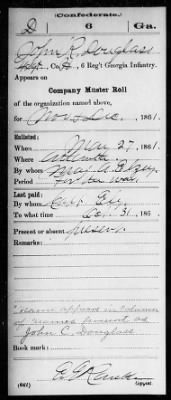 (Confederate.)
D 6 Ga.
John R. Douglass
Co. D, 6 Reg't Georgia Infantry.
Appears on
Company Muster Roll
of the organization named above,
for Nov & Dec, 1861.
Enlisted:
When May 27, 1861.
Where Atlanta
By whom Maj
Period For the War
Last paid:
By whom Capt
To what time Oct. 31, 186
Present or absent Present
Remarks:
Name appears in column
of names present as
John C. Douglass
Book mark:
(642) Copyist.